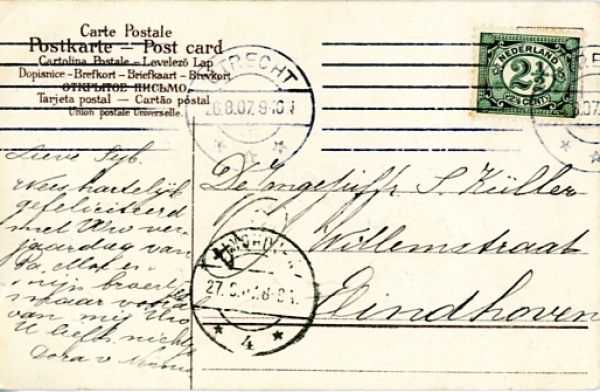 Carte Postale
Postkarte — Post card
Cartolina Postale – Levelező Lap
Dopisnice – Brefkort – Briefkaart – Brevkort
ОТКРЫТОЕ ПИСЬМО
Tarjeta postal – Cartão postal
Union postale Universelle.
UTRECHT
26.8.07. 9-10
4
NEDERLAND
2½
(2½ CENT)
Lieve
Wees hartelijk
gefeliciteerd
met Uw ver-
jaardag van
Pa, Moe en
mijn broer
maar
van mij Uw
U liefh. nichtje
Dora v.
De S. Küller
Willemstraat
Eindhoven
27.8.
4